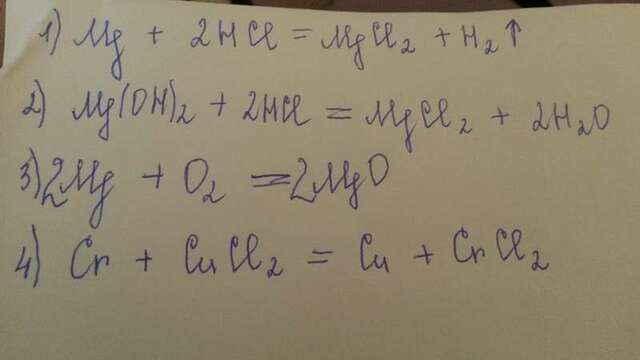 1) Mg + 2HCl = MgCl₂ + H₂↑
2) Mg(OH)₂ + 2HCl = MgCl₂ + 2H₂O
3) 2Mg + O₂ = 2MgO
4) Cr + CuCl₂ = Cu + CrCl₂